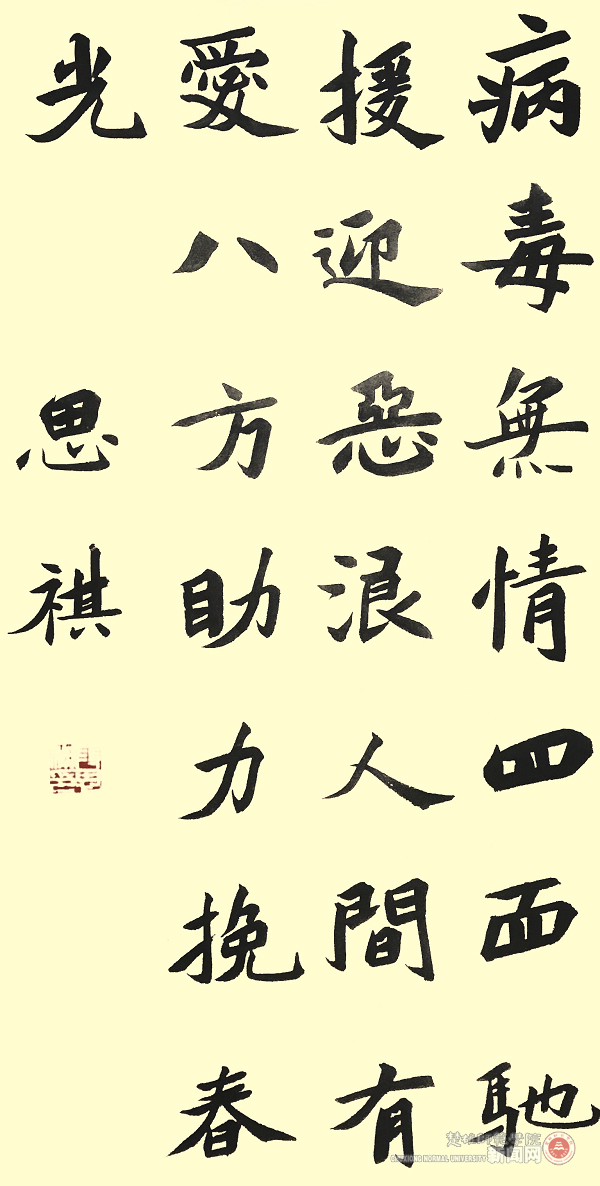 病毒無情四面馳
援迎惡浪人間有
愛八方助力挽春
光
思祺
楚雄師範學院
新闻网
CHUXIONG NORMAL UNIVERSITY